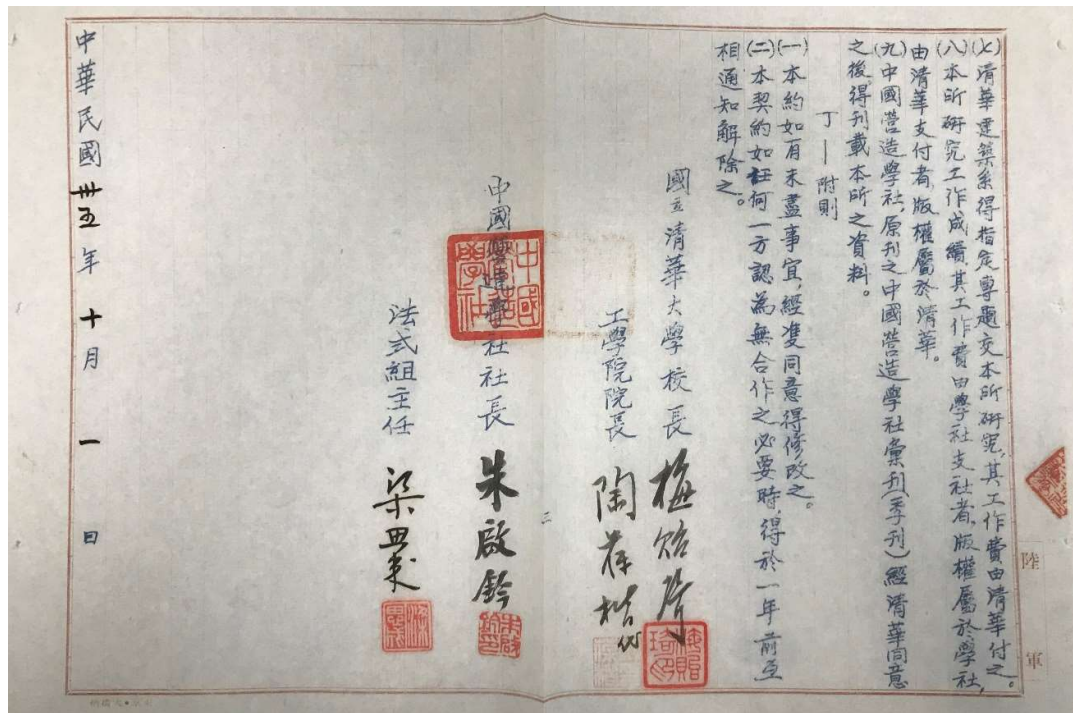 (七)清華建築系得指定專題交本所研究,其工作費由清華付之。
(八)本所研究工作成績其工作費由學社支社者,版權屬於學社,
由清華支付者,版權屬於清華。
(九)中國營造學社,原刊之中國營造學社彙刊(季刊)經清華同意
之後,得刊載本所之資料。
丁——附則
(一)本約如有未盡事宜,經雙同意得修改之。
(二)本契約如任何一方認為無合作之必要時,得於一年前互
相通知解除之。
國立清華大學校長 梅貽琦
梅貽琦印
工學院院長 陶葆楷代
三
中國營造學社社長 朱啟鈐
中國營造學社
朱啟鈐印
法式組主任 梁思成
梁思成
中華民國卅五年十月一日
陸
軍